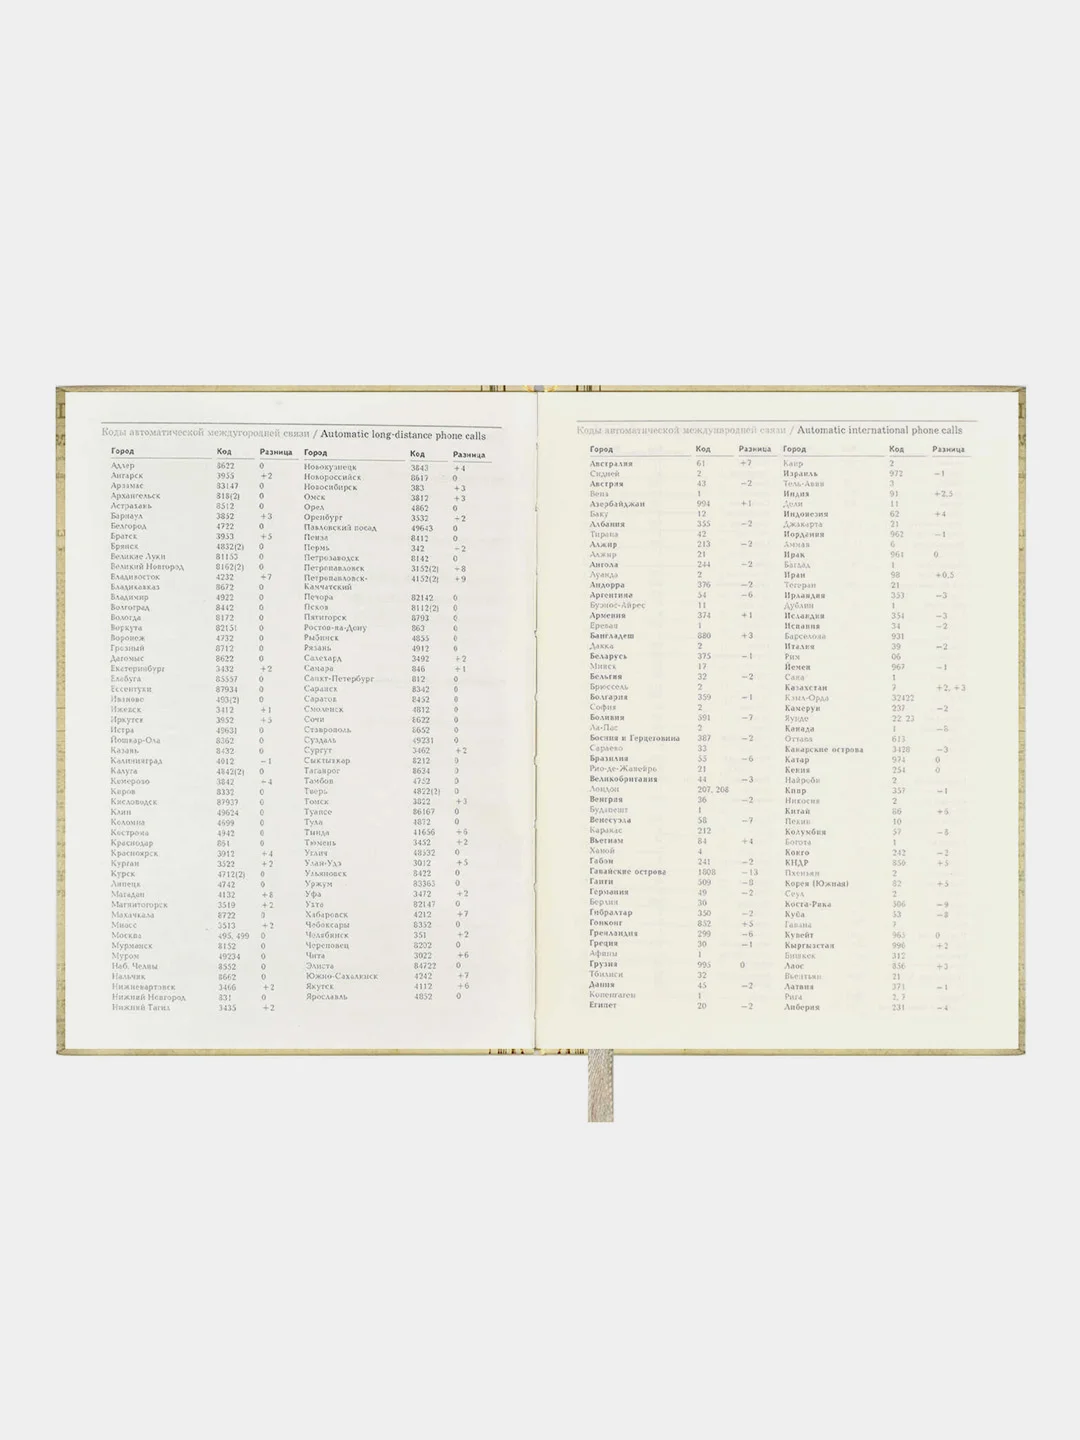 Коды автоматической междугородней связи / Automatic long-distance phone calls
Город Код Разница
Адлер 8622 0
Ангарск 3955 +2
Арзамас 83147 0
Архангельск 818(2) 0
Астрахань 8512 0
Барнаул 3852 +3
Белгород 4722 0
Братск 3953 +5
Брянск 4832(2) 0
Великие Луки 81153 0
Великий Новгород 8162(2) 0
Владивосток 4232 +7
Владикавказ 8672 0
Владимир 4922 0
Волгоград 8442 0
Вологда 8172 0
Воркута 82151 0
Воронеж 4732 0
Грозный 8712 0
Дагомыс 8622 0
Екатеринбург 3432 +2
Елабуга 85557 0
Ессентуки 87934 0
Иваново 493(2) 0
Ижевск 3412 +1
Иркутск 3952 +5
Истра 49631 0
Йошкар-Ола 8362 0
Казань 8432 0
Калининград 4012 −1
Калуга 4842(2) 0
Кемерово 3842 +4
Киров 8332 0
Кисловодск 87937 0
Клин 49624 0
Коломна 4699 0
Кострома 4942 0
Краснодар 861 0
Красноярск 3912 +4
Курган 3522 +2
Курск 4712(2) 0
Липецк 4742 0
Магадан 4132 +8
Магнитогорск 3519 +2
Махачкала 8722 0
Миасс 3513 +2
Москва 495, 499 0
Мурманск 8152 0
Муром 49234 0
Наб. Челны 8552 0
Нальчик 8662 0
Нижневартовск 3466 +2
Нижний Новгород 831 0
Нижний Тагил 3435 +2
Город Код Разница
Новокузнецк 3843 +4
Новороссийск 8617 0
Новосибирск 383 +3
Омск 3812 +3
Орел 4862 0
Оренбург 3532 +2
Павловский посад 49643 0
Пенза 8412 0
Пермь 342 +2
Петрозаводск 8142 0
Петропавловск 3152(2) +8
Петропавловск- 4152(2) +9
Камчатский
Печора 82142 0
Псков 8112(2) 0
Пятигорск 8793 0
Ростов-на-Дону 863 0
Рыбинск 4855 0
Рязань 4912 0
Салехард 3492 +2
Самара 846 +1
Санкт-Петербург 812 0
Саранск 8342 0
Саратов 8452 0
Смоленск 4812 0
Сочи 8622 0
Ставрополь 8652 0
Суздаль 49231 0
Сургут 3462 +2
Сыктывкар 8212 0
Таганрог 8634 0
Тамбов 4752 0
Тверь 4822(2) 0
Томск 3822 +3
Туапсе 86167 0
Тула 4872 0
Тында 41656 +6
Тюмень 3452 +2
Углич 48532 0
Улан-Удэ 3012 +5
Ульяновск 8422 0
Уржум 83363 0
Уфа 3472 +2
Ухта 82147 0
Хабаровск 4212 +7
Чебоксары 8352 0
Челябинск 351 +2
Череповец 8202 0
Чита 3022 +6
Элиста 84722 0
Южно-Сахалинск 4242 +7
Якутск 4112 +6
Ярославль 4852 0
Коды автоматической международней связи / Automatic international phone calls
Город Код Разница
Австралия 61 +7
Сидней 2
Австрия 43 −2
Вена 1
Азербайджан 994 +1
Баку 12
Албания 355 −2
Тирана 42
Алжир 213 −2
Алжир 21
Ангола 244 −2
Луанда 2
Андорра 376 −2
Аргентина 54 −6
Буэнос-Айрес 11
Армения 374 +1
Ереван 1
Бангладеш 880 +3
Дакка 2
Беларусь 375 −1
Минск 17
Бельгия 32 −2
Брюссель 2
Болгария 359 −1
София 2
Боливия 591 −7
Ла-Пас 2
Босния и Герцеговина 387 −2
Сараево 33
Бразилия 55 −6
Рио-де-Жанейро 21
Великобритания 44 −3
Лондон 207, 208
Венгрия 36 −2
Будапешт 1
Венесуэла 58 −7
Каракас 212
Вьетнам 84 +4
Ханой 4
Габон 241 −2
Гавайские острова 1808 −13
Гаити 509 −8
Германия 49 −2
Берлин 30
Гибралтар 350 −2
Гонконг 852 +5
Гренландия 299 −6
Греция 30 −1
Афины 1
Грузия 995 0
Тбилиси 32
Дания 45 −2
Копенгаген 1
Египет 20 −2
Город Код Разница
Каир 2
Израиль 972 −1
Тель-Авив 3
Индия 91 +2,5
Дели 11
Индонезия 62 +4
Джакарта 21
Иордания 962 −1
Амман 6
Ирак 964 0
Багдад 1
Иран 98 +0,5
Тегеран 21
Ирландия 353 −3
Дублин 1
Исландия 354 −3
Испания 34 −2
Барселона 931
Италия 39 −2
Рим 06
Йемен 967 −1
Сана 1
Казахстан 7 +2, +3
Кзыл-Орда 32422
Камерун 237 −2
Яунде 22 23
Канада 1 −8
Оттава 613
Канарские острова 3428 −3
Катар 974 0
Кения 254 0
Найроби 2
Кипр 357 −1
Никосия 2
Китай 86 +6
Пекин 10
Колумбия 57 −8
Богота 1
Конго 242 −2
КНДР 850 +5
Пхеньян 2
Корея (Южная) 82 +5
Сеул 2
Коста-Рика 506 −9
Куба 53 −8
Гавана 7
Кувейт 965 0
Кыргызстан 996 +2
Бишкек 312
Лаос 856 +3
Вьентьян 21
Латвия 371 −1
Рига 2, 7
Либерия 231 −4